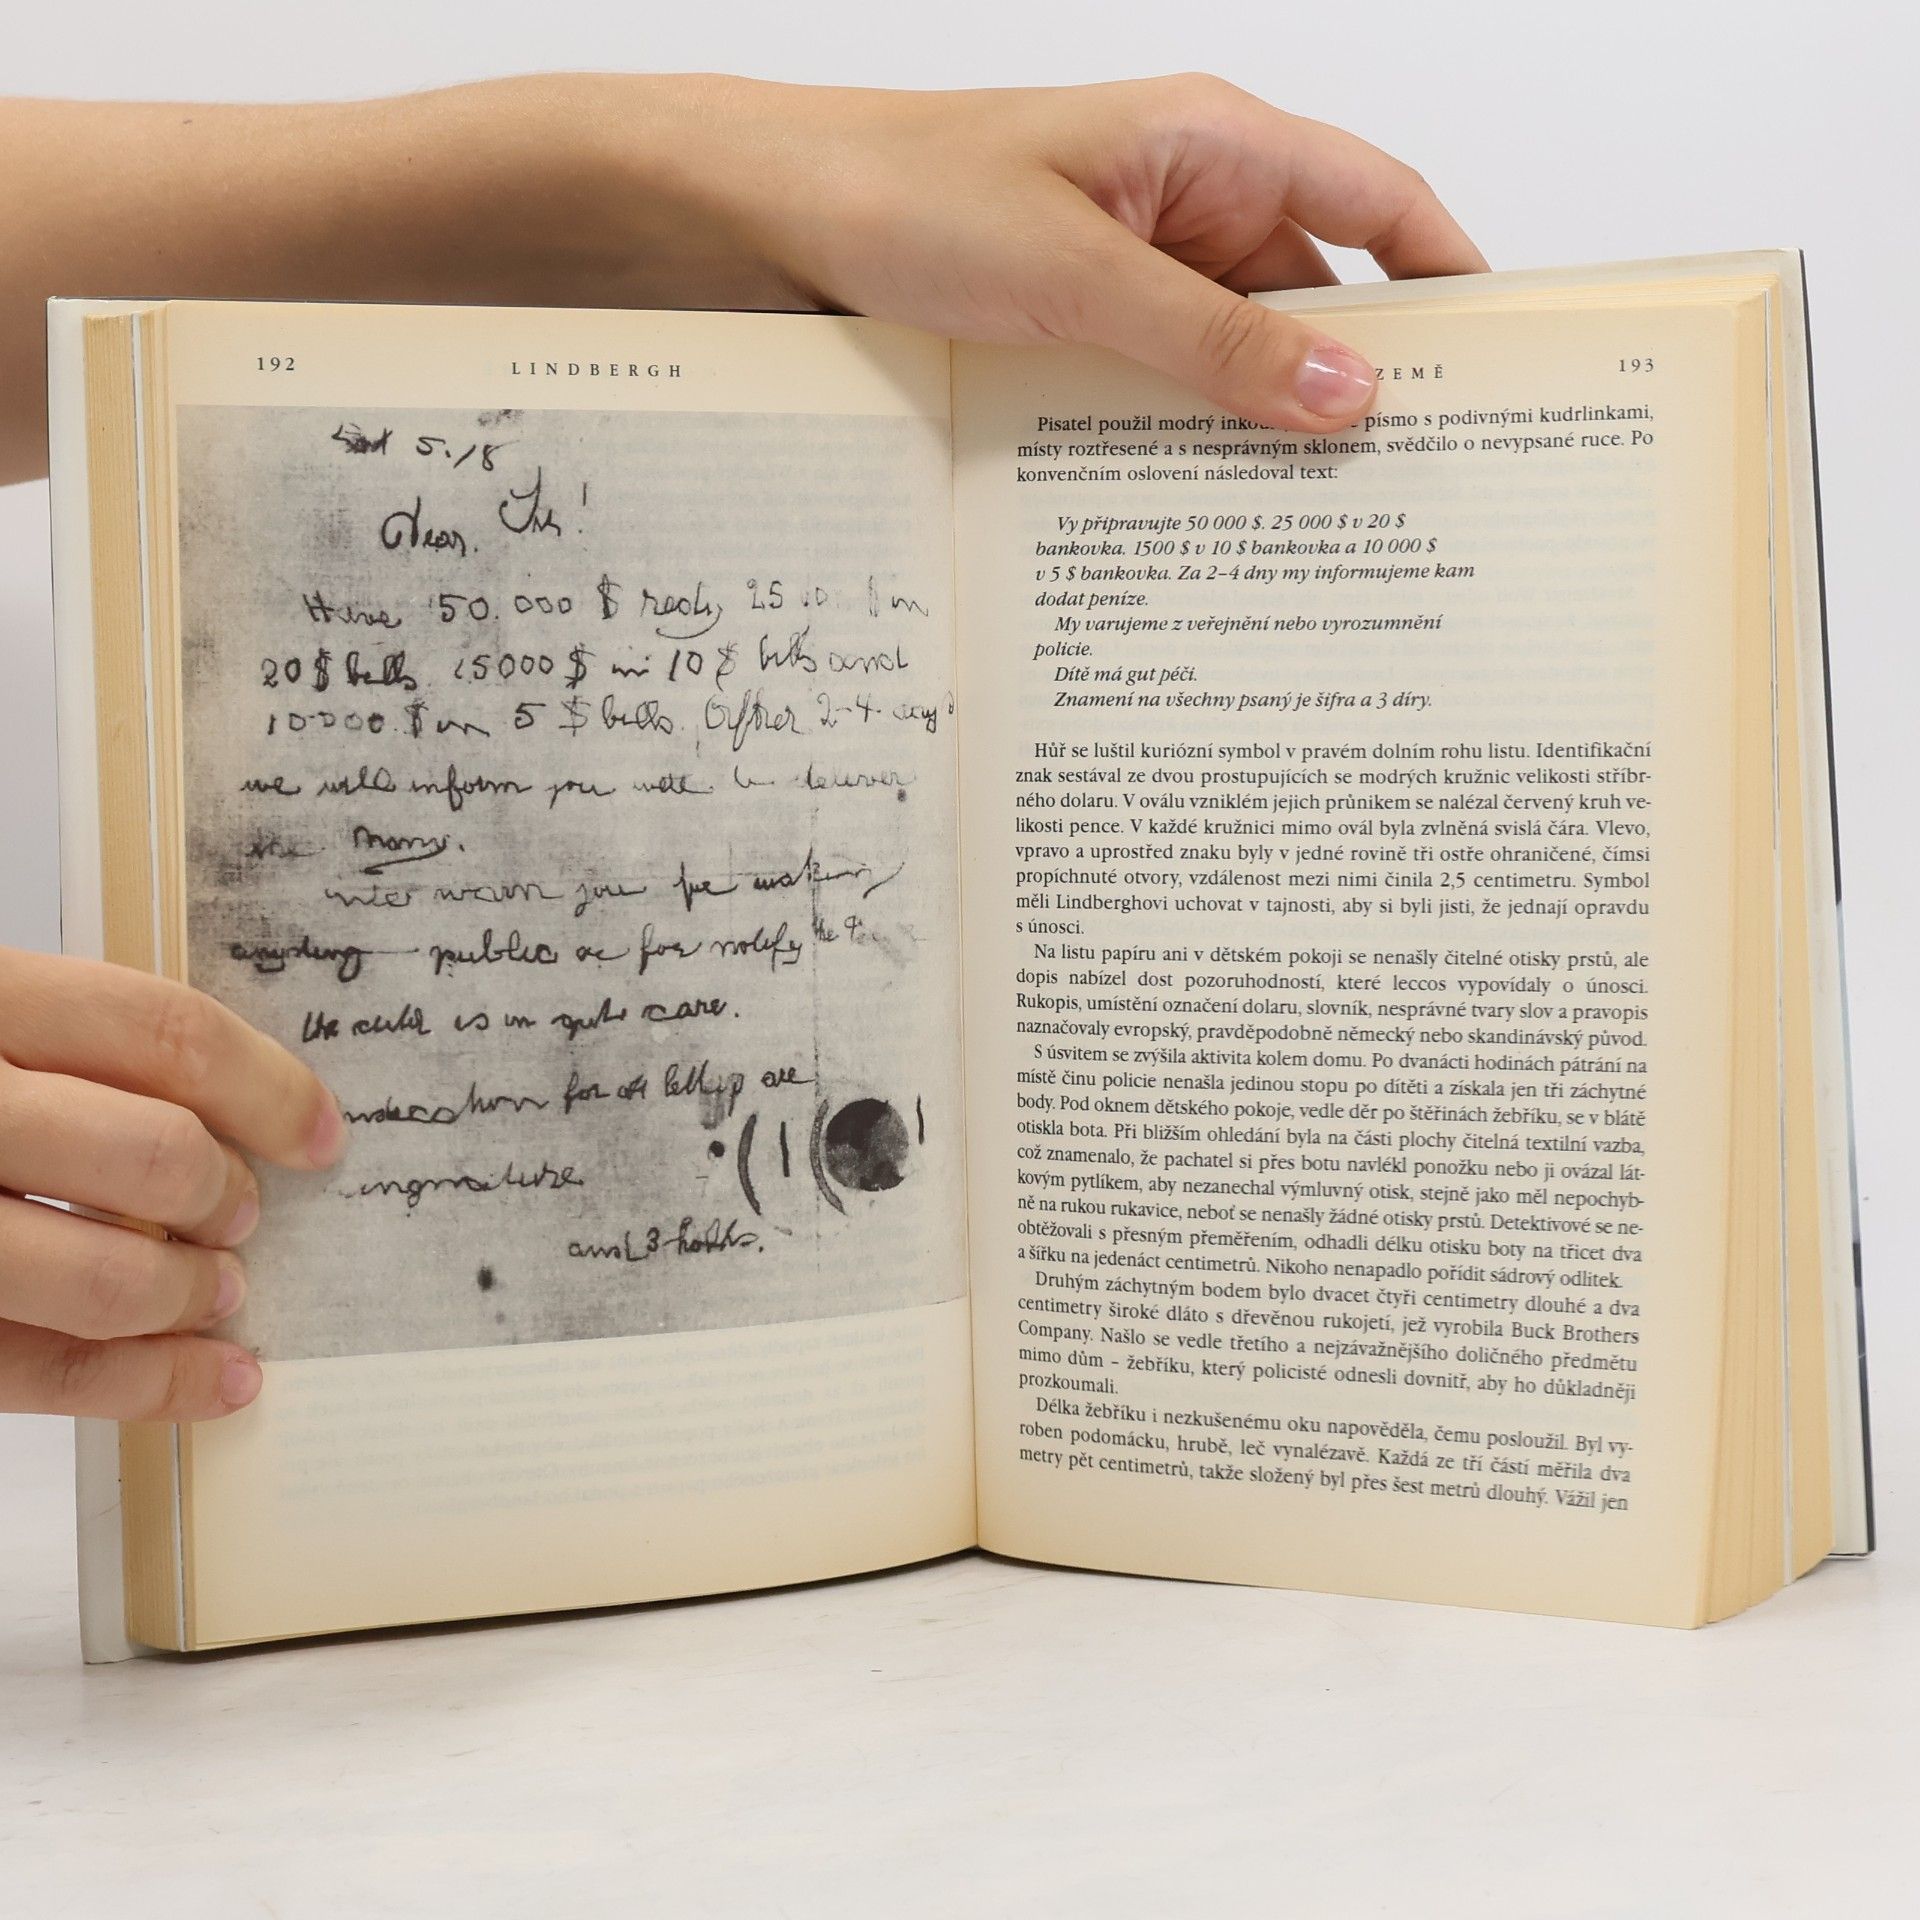 192
LINDBERGH
5./8
Dear. Sir!
Have 50.000 $ redy 25 $ in
20 $ bills 15000 $ in 10 $ bills and
10000 $ in 5 $ bills. After 2-4
we will inform you were to deliver
the Mony.
warn you for making
anyding public or for notify the
the child is in gute care.
for all letters are
singnature
and 3 hohls.
ZEMĚ
193
Pisatel použil modrý písmo s podivnými kudrlinkami,
místy roztřesené a s nesprávným sklonem, svědčilo o nevypsané ruce. Po
konvenčním oslovení následoval text:
Vy připravujte 50 000 $. 25 000 $ v 20 $
bankovka. 1500 $ v 10 $ bankovka a 10 000 $
v 5 $ bankovka. Za 2–4 dny my informujeme kam
dodat peníze.
My varujeme z veřejnění nebo vyrozumnění
policie.
Dítě má gut péči.
Znamení na všechny psaný je šifra a 3 díry.
Hůř se luštil kuriózní symbol v pravém dolním rohu listu. Identifikační
znak sestával ze dvou prostupujících se modrých kružnic velikosti stříbr-
ného dolaru. V oválu vzniklém jejich průnikem se nalézal červený kruh ve-
likosti pence. V každé kružnici mimo ovál byla zvlněná svislá čára. Vlevo,
vpravo a uprostřed znaku byly v jedné rovině tři ostře ohraničené, čímsi
propíchnuté otvory, vzdálenost mezi nimi činila 2,5 centimetru. Symbol
měli Lindberghovi uchovat v tajnosti, aby si byli jisti, že jednají opravdu
s únosci.
Na listu papíru ani v dětském pokoji se nenašly čitelné otisky prstů, ale
dopis nabízel dost pozoruhodností, které leccos vypovídaly o únosci.
Rukopis, umístění označení dolaru, slovník, nesprávné tvary slov a pravopis
naznačovaly evropský, pravděpodobně německý nebo skandinávský původ.
S úsvitem se zvýšila aktivita kolem domu. Po dvanácti hodinách pátrání na
místě činu policie nenašla jedinou stopu po dítěti a získala jen tři záchytné
body. Pod oknem dětského pokoje, vedle děr po štěřinách žebříku, se v blátě
otiskla bota. Při bližším ohledání byla na části plochy čitelná textilní vazba,
což znamenalo, že pachatel si přes botu navlékl ponožku nebo ji ovázal lát-
kovým pytlíkem, aby nezanechal výmluvný otisk, stejně jako měl nepochyb-
ně na rukou rukavice, neboť se nenašly žádné otisky prstů. Detektivové se ne-
obtěžovali s přesným přeměřením, odhadli délku otisku boty na třicet dva
a šířku na jedenáct centimetrů. Nikoho nenapadlo pořídit sádrový odlitek.
Druhým záchytným bodem bylo dvacet čtyři centimetry dlouhé a dva
centimetry široké dláto s dřevěnou rukojetí, jež vyrobila Buck Brothers
Company. Našlo se vedle třetího a nejzávažnějšího doličného předmětu
mimo dům – žebříku, který policisté odnesli dovnitř, aby ho důkladněji
prozkoumali.
Délka žebříku i nezkušenému oku napověděla, čemu posloužil. Byl vy-
roben podomácku, hrubě, leč vynalézavě. Každá ze tří částí měřila dva
metry pět centimetrů, takže složený byl přes šest metrů dlouhý. Vážil jen